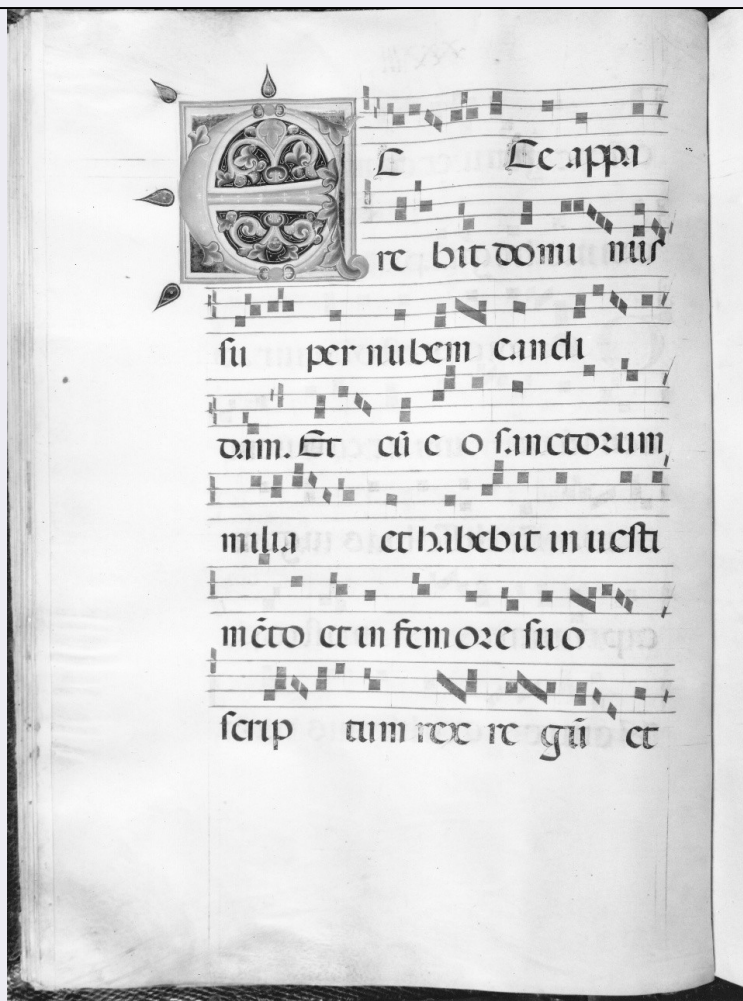 E C Ce appa
re bit domi nus
su per nubem candi
dam. Et cū e o sanctorum
milia et habebit in uesti
mēto et in femore suo
scrip tum rex re gū et